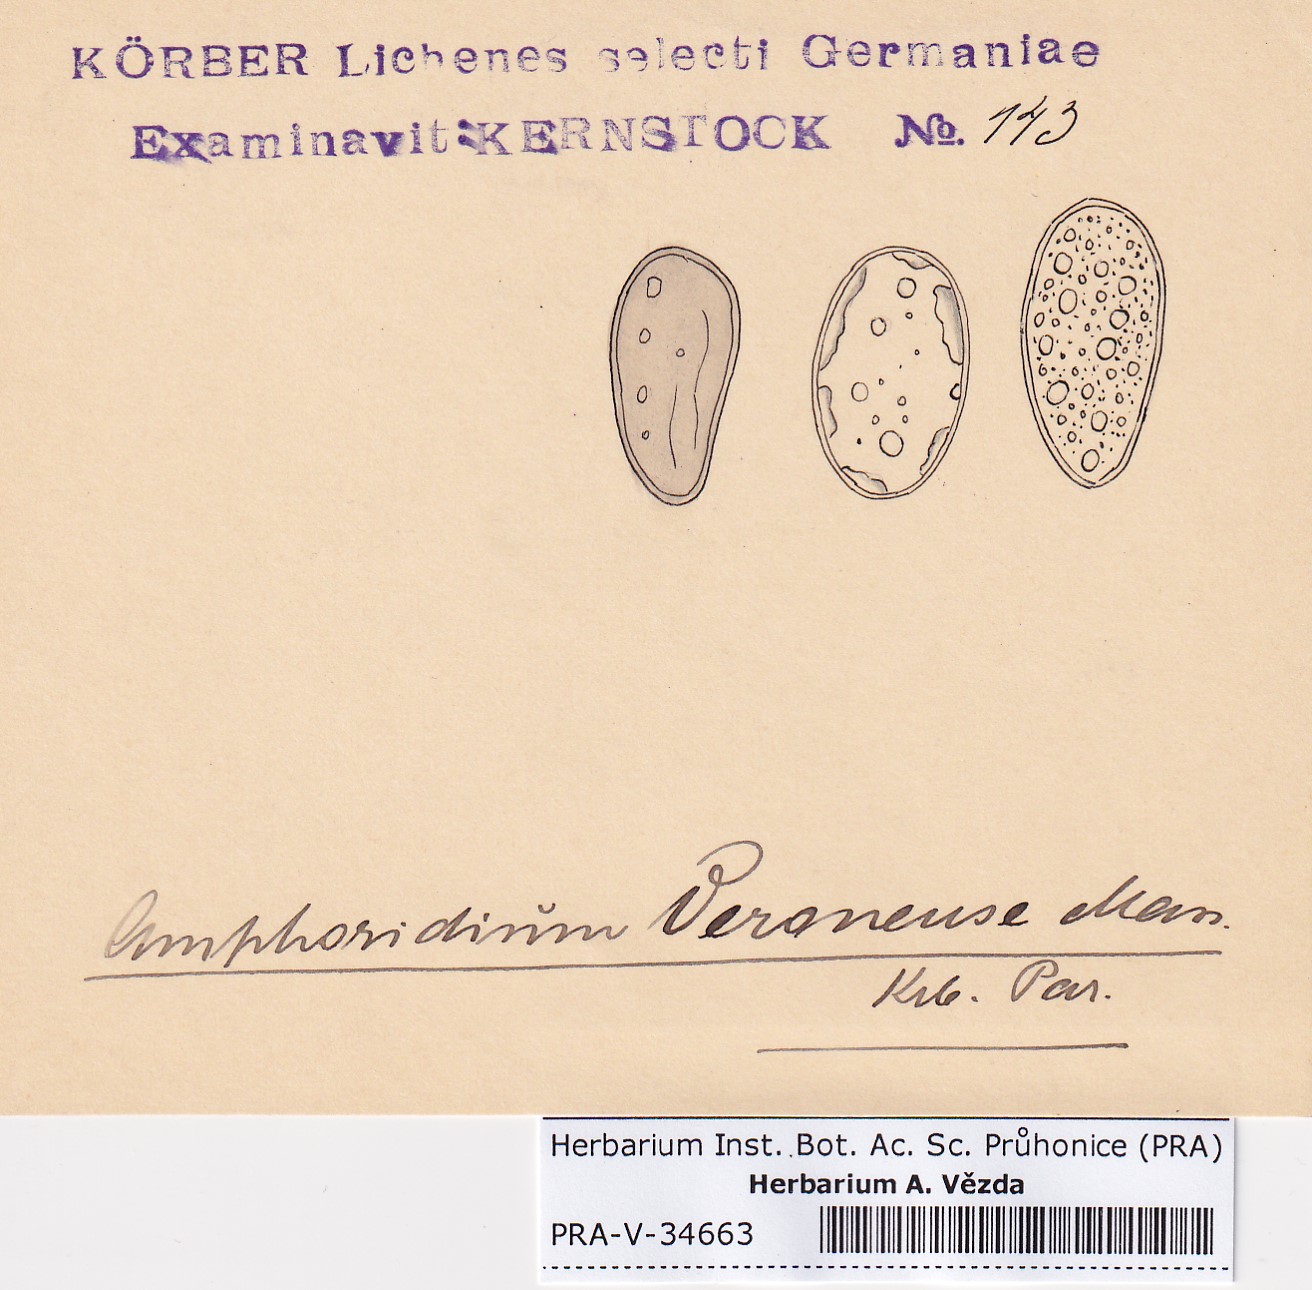 KÖRBER Lichenes selecti Germaniae
Examinavit: KERNSTOCK No. 143
Amphoridium Veronense Mass.
Krb. Par.
Herbarium Inst. Bot. Ac. Sc. Průhonice (PRA)
Herbarium A. Vězda
PRA-V-34663